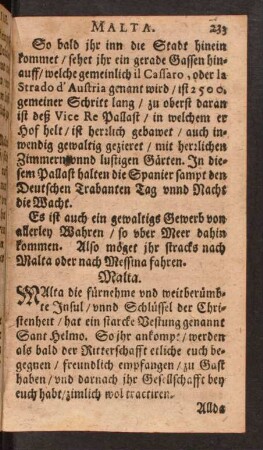 MALTA. 233
So bald jhr inn die Stadt hinein
kommet / sehet jhr ein gerade Gassen hin-
auff / welche gemeinlich il Cassaro, oder la
Strado d' Austria genant wird / ist 2500.
gemeiner Schritt lang / zu oberst daran
ist deß Vice Re Pallast / in welchem er
Hof helt / ist herzlich gebawet / auch in-
wendig gewaltig gezieret / mit herzlichen
Zimmern vnnd lustigen Gärten. In die-
sem Pallast halten die Spanier sampt den
Deutschen Trabanten Tag vnnd Nacht
die Wacht.
Es ist auch ein gewaltigs Gewerb von
allerley Wahren / so vber Meer dahin
kommen. Also möget jhr stracks nach
Malta oder nach Messina fahren.
Malta.
MAlta die fürnehme vnd weitberümb-
te Insul / vnnd Schlüssel der Chri-
stenheit / hat ein starcke Vestung genannt
Sant Helmo. So jhr ankompt / werden
als bald der Ritterschafft etliche euch be-
gegnen / freundlich empfangen / zu Gast
haben / vnd darnach jhr Gesellschafft bey
euch habt / zimlich wol tractiren.
Allda